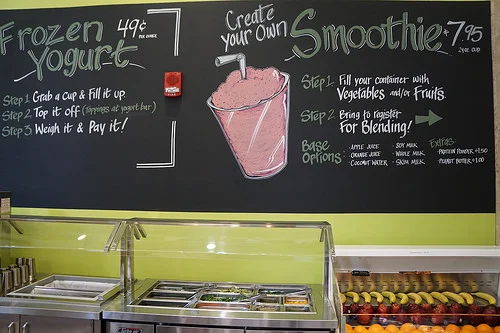 Frozen Yogurt
49¢
PER OUNCE
Step 1. Grab a Cup & Fill it up
Step 2. Top it off (toppings at yogurt bar)
Step 3. Weigh it & Pay it!
Create your Own
Smoothie
+7.95
24oz. CUP
Step 1. Fill your container with
Vegetables and/or Fruits.
Step 2. Bring to register
For Blending!
Base Options:
- APPLE JUICE
- ORANGE JUICE
- COCONUT WATER
- SOY MILK
- WHOLE MILK
- SKIM MILK
Extras:
- PROTEIN POWDER +1.50
- PEANUT BUTTER +1.00